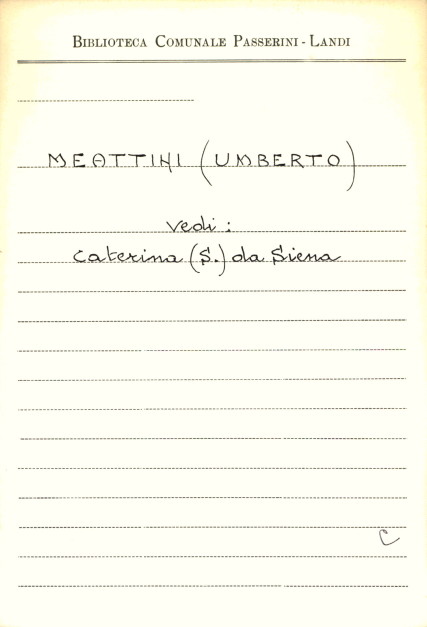 BIBLIOTECA COMUNALE PASSERINI - LANDI
MEATTINI (UMBERTO)
vedi:
Caterina (S.) da Siena
C